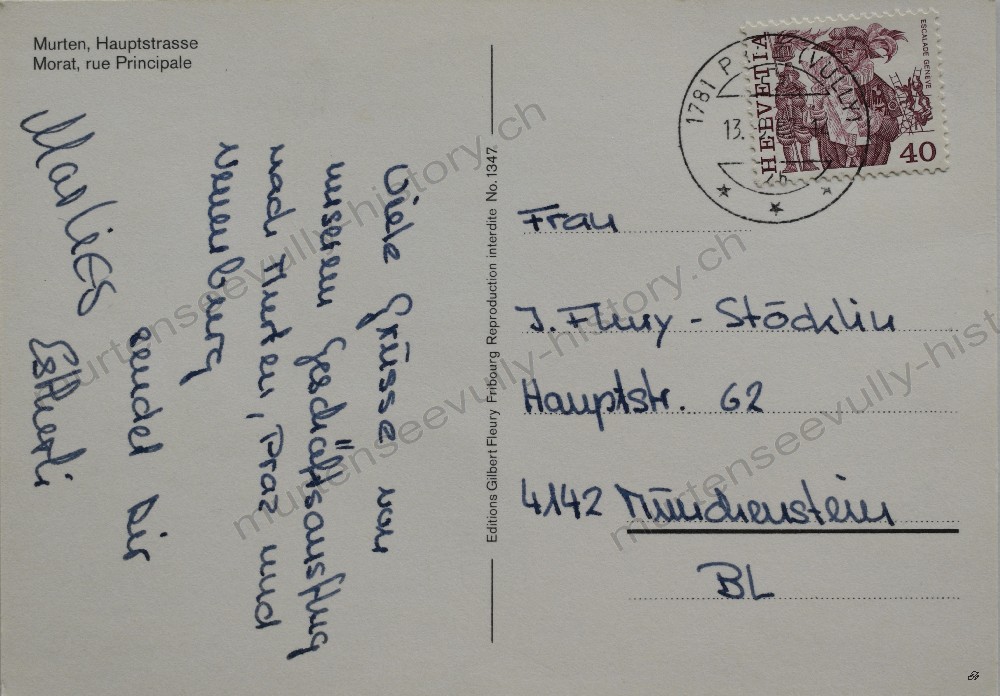 Murten, Hauptstrasse
Morat, rue Principale
Viele Grüsse von
unserem Geschäftsausflug
nach Murten, Praz und
Neuenburg
sendet Dir
Estherli
Marlies
Editions Gilbert Fleury Fribourg Reproduction interdite No. 1347
1781 P (VULLY)
13.
HELVETIA
ESCALADE GENÈVE
40
Frau
J. Fleury - Stöcklin
Hauptstr. 62
4142 Münchenstein
BL
murtenseevully-history.ch
murtenseevully-history.ch
murtenseevully-history.ch
murtenseevully-hist